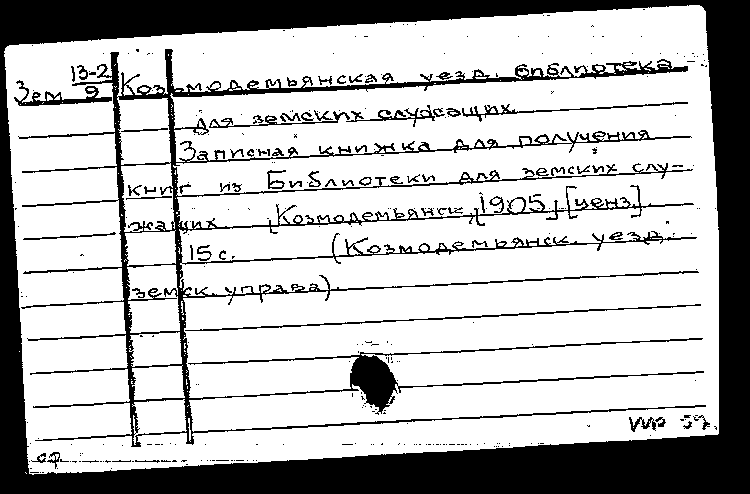 Зем 13-2/9 Козьмодемьянская уезд. библиотека
для земских служащих.
Записная книжка для получения
книг из Библиотеки для земских слу-
жащих. [Козмодемьянск,] [1905] [ценз.].
15 с. (Козмодемьянск. уезд.
земск. управа).